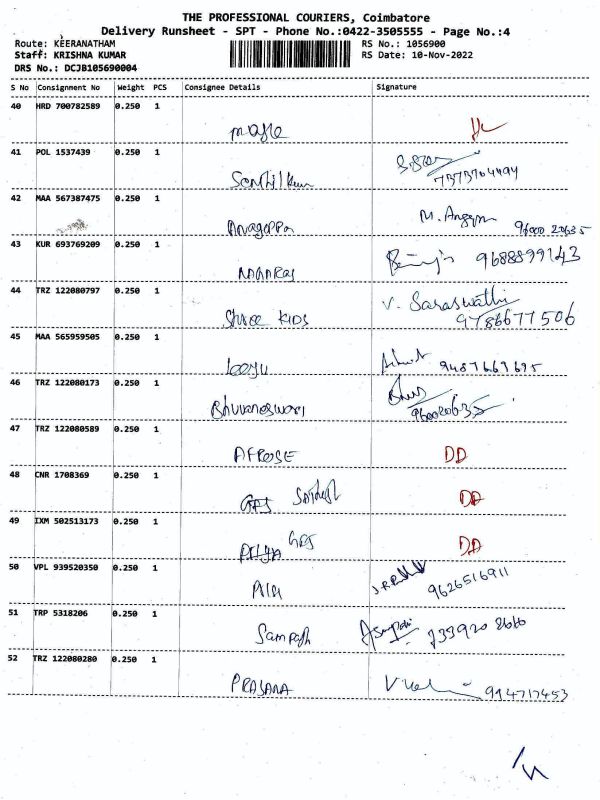 THE PROFESSIONAL COURIERS, Coimbatore
Delivery Runsheet - SPT - Phone No.:0422-3505555 - Page No.:4
Route: KEERANATHAM RS No.: 1056900
Staff: KRISHNA KUMAR RS Date: 10-Nov-2022
DRS No.: DCJB105690004
S No Consignment No Weight PCS Consignee Details Signature
40 HRD 700782589 0.250 1
41 POL 1537439 0.250 1
Senthilkum 7373704494
42 MAA 567387475 0.250 1
M. Angappn 96000 20635
43 KUR 693769209 0.250 1
NAGARAJ 9688899143
44 TRZ 122080797 0.250 1
Shree KIDS V. Saraswathi
9786677506
45 MAA 565959505 0.250 1
9487663695
46 TRZ 122080173 0.250 1
Bhuvaneswari Bhuv
9600020635
47 TRZ 122080589 0.250 1
AFROSE DD
48 CNR 1708369 0.250 1
DD
49 IXM 502513173 0.250 1
DD
50 VPL 939520350 0.250 1
9626516911
51 TRP 5318206 0.250 1
Sampath
52 TRZ 122080280 0.250 1
PRASANA 994717453